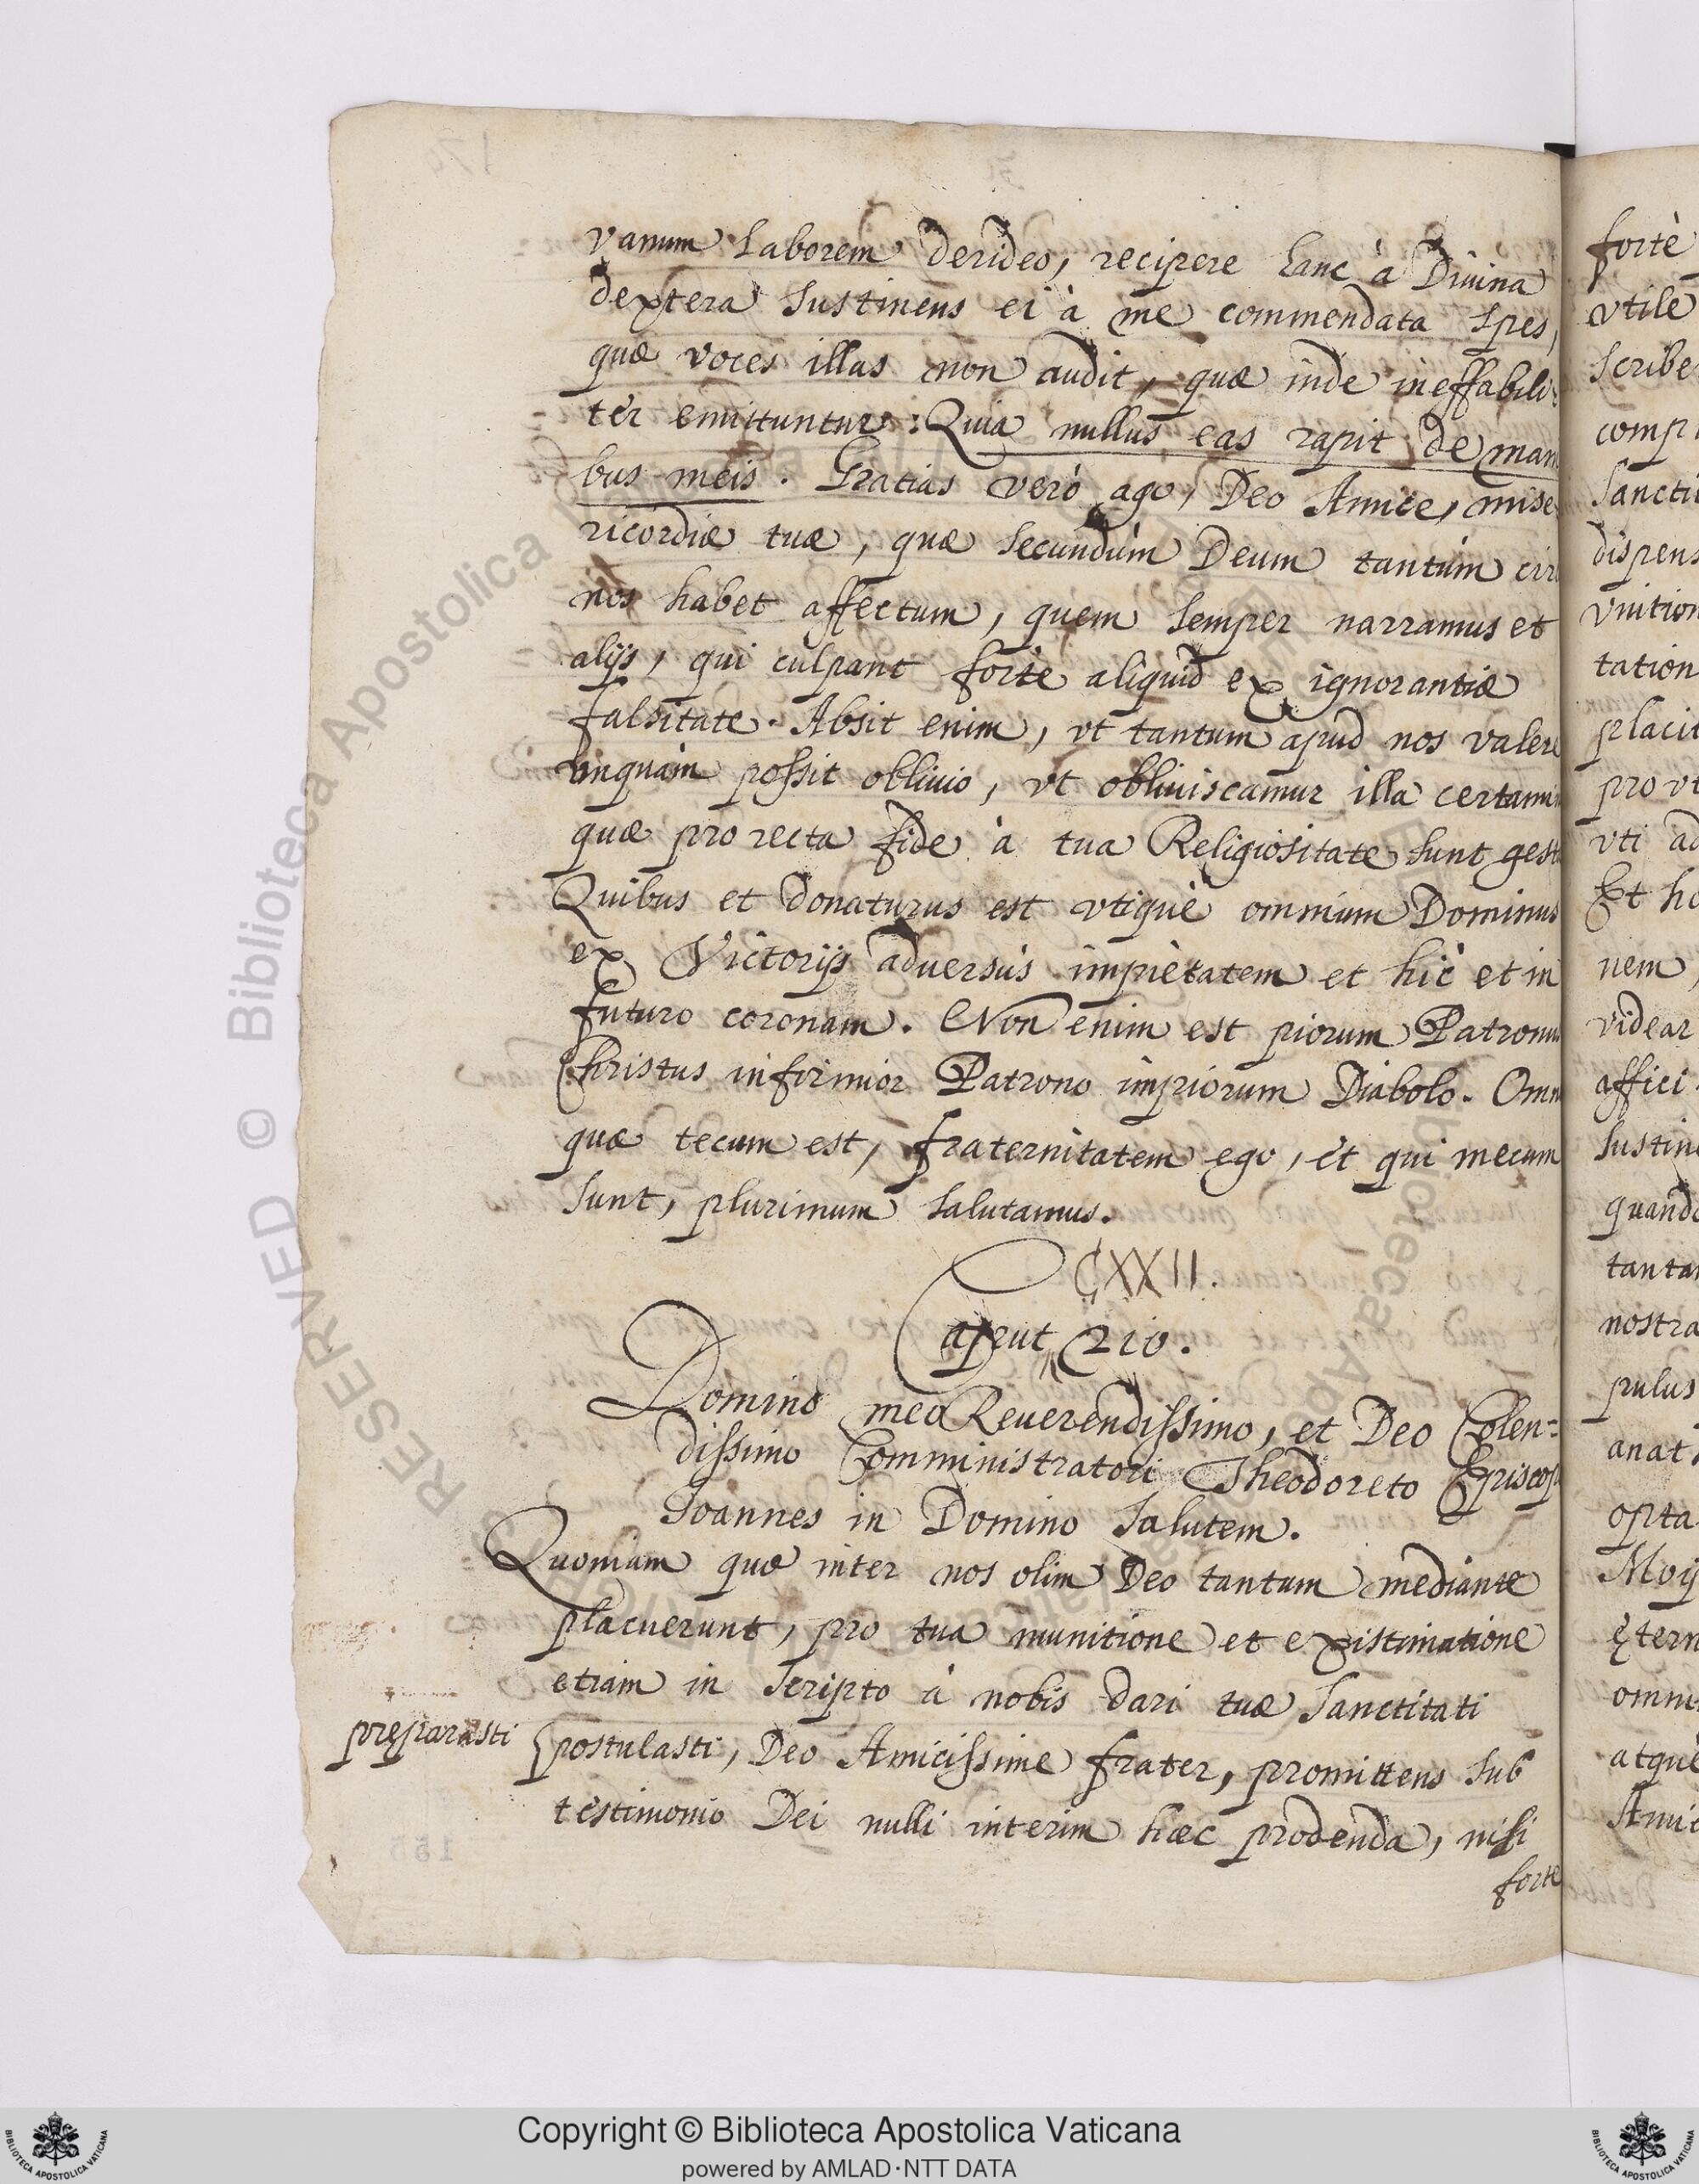 vanum laborem derideo, recipere hanc à Diuina
dextera sustinens ei à me commendata spes,
quæ voces illas non audit, quæ inde ineffabili:
tèr emittuntur: Quia nullus eas rapit de man
bus meis. Gratias verò ago, Deo Amice, mise
ricordiæ tuæ, quæ secundùm Deum tantùm cir
nos habet affectum, quem semper narramus et
alijs, qui culpant fortè aliquid ex ignorantiæ
falsitate. Absit enim, vt tantum apud nos valere
vnquàm possit obliuio, vt obliuiscamur illa certami
quæ pro recta fide à tua Religiositate sunt gest
Quibus et donaturus est vtiquè omnium Dominus
ex Victorijs aduersùs impietatem et hìc et in
futuro coronam. Non enim est piorum Patronu
Christus infirmior Patrono impiorum Diabolo. Omn
quæ tecum est, fraternitatem ego, et qui mecum
sunt, plurimum salutamus.
CXXII.
Caput 210.
Domino meo Reuerendissimo, et Deo Colen=
dissimo Comministratori Theodoreto Episcop
Ioannes in Domino Salutem.
Quoniam quæ inter nos olim Deo tantum mediante
placuerunt, pro tua munitione et existimatione
etiam in scripto à nobis dari tuæ Sanctitati
præparasti postulasti, Deo Amicissime frater, promittens sub
testimonio Dei nulli interim hæc prodenda, nisi
forte
fortè
vtile
scribe
comp
Sancti
dispens
vnition
tation
placit
pro vt
vti ad
Et ho
nem,
videar
affici
sustin
quando
tantam
nostra
pulus
anat
opta
Moy
ętern
omni
atquè
Amic
Copyright © Biblioteca Apostolica Vaticana
powered by AMLAD·NTT DATA